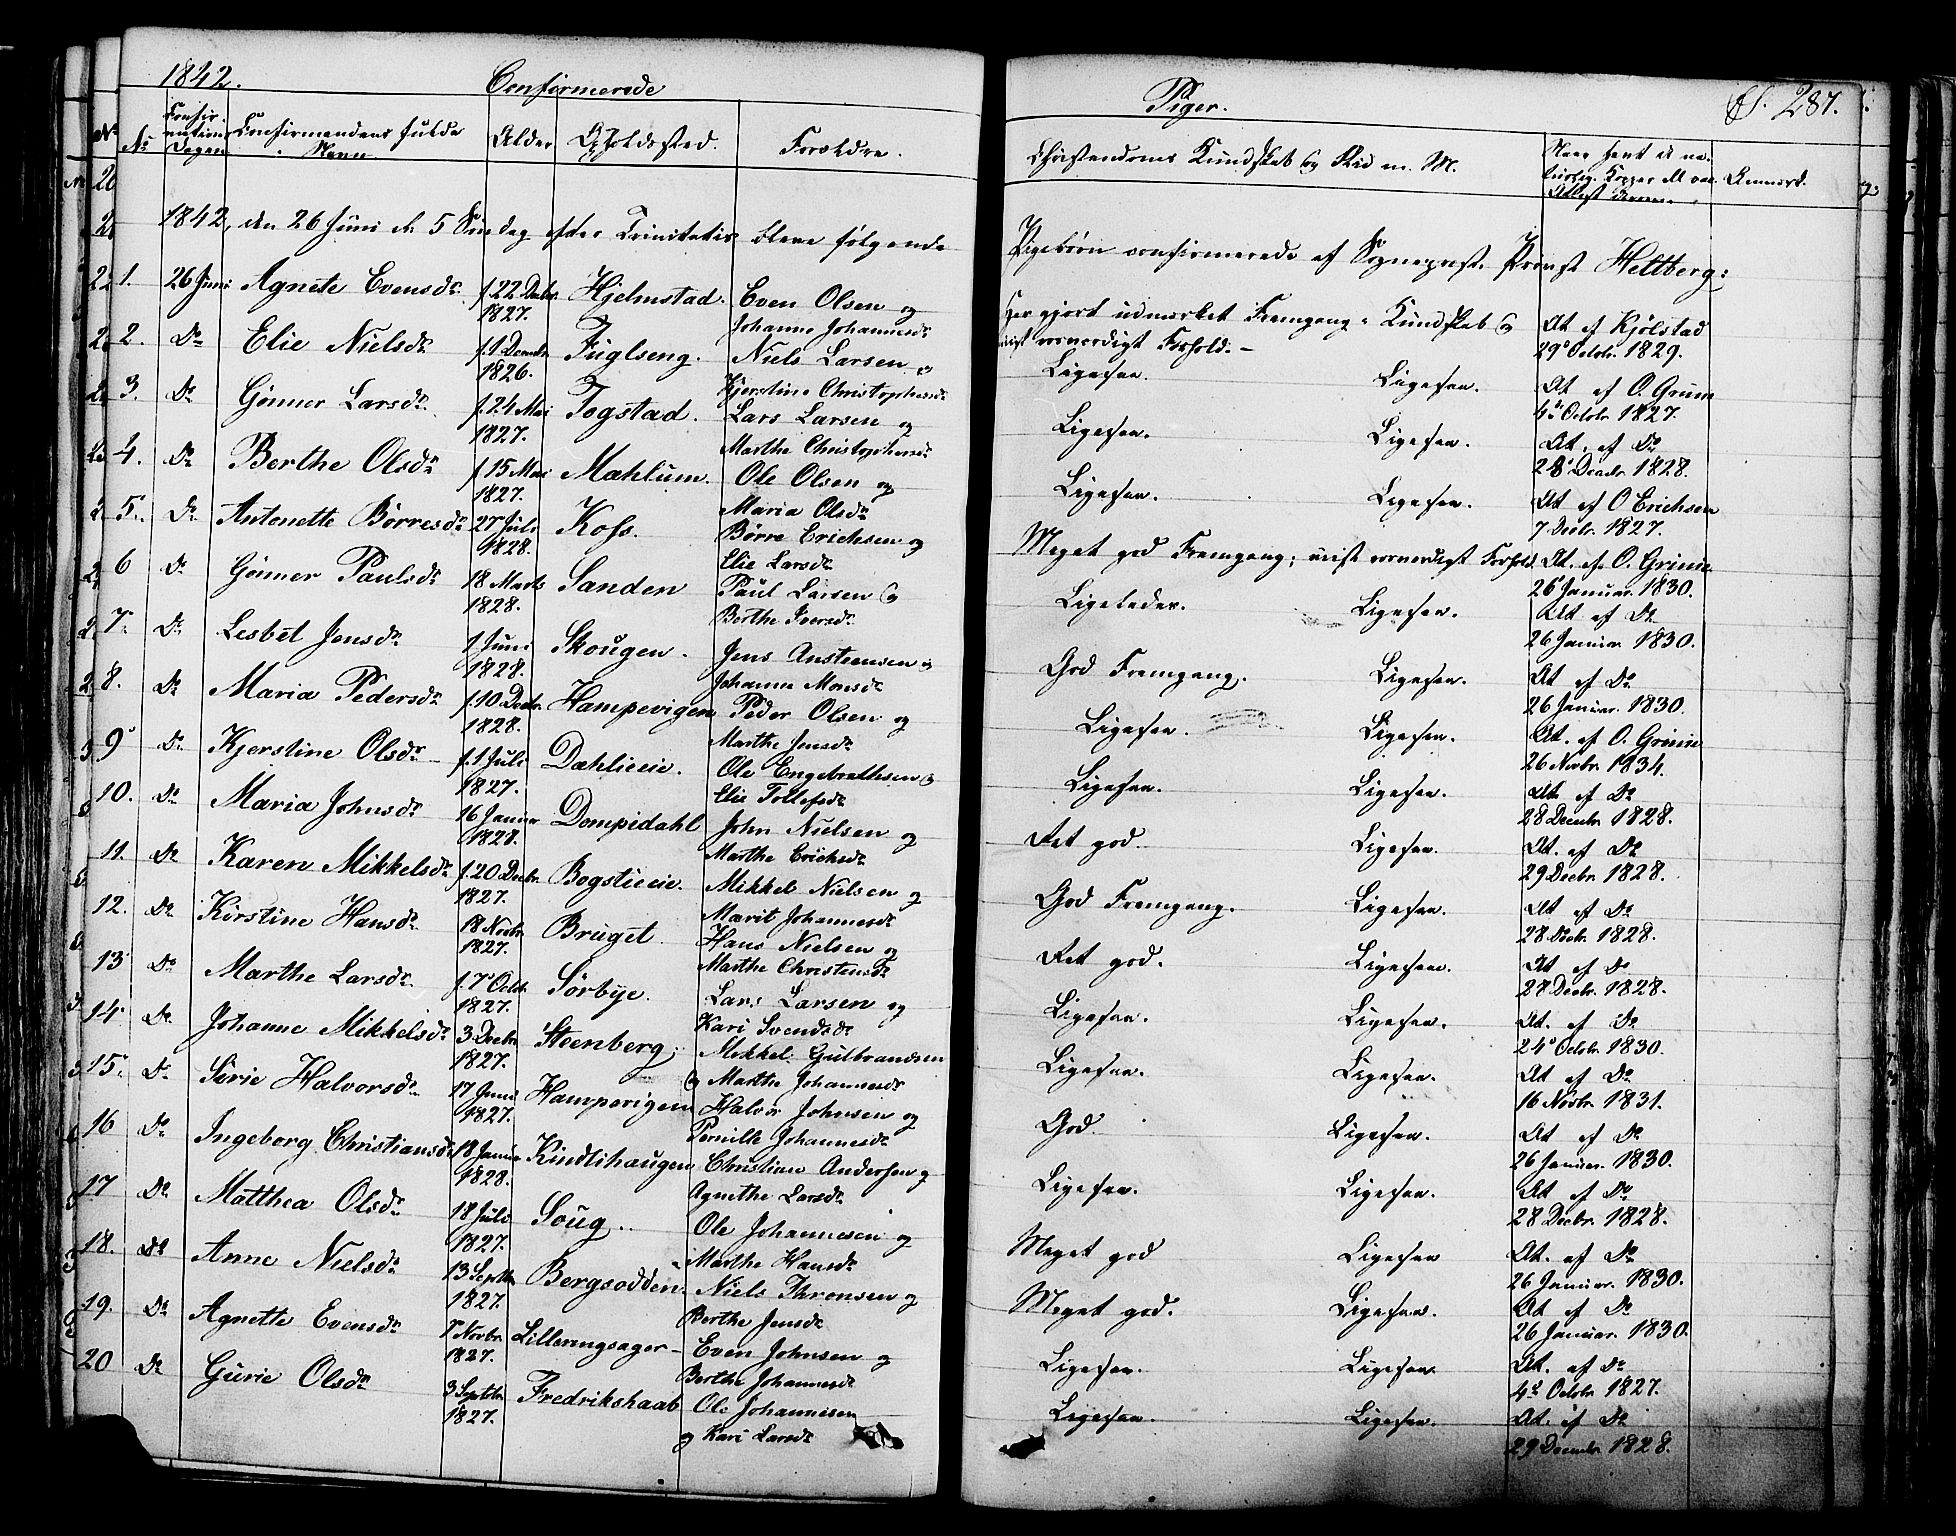 1842. Confirmerede Piger. S. 287.
No Confirmations Dagen Confirmandens fulde Navn Alder Opholdssted. Forældre. Christendoms Kundskab og Flid m. M. Naar havt de naturlig. Kopper el. vac. Attest derom. Anmærk.
1842, den 26 Juni d. 5 Søndag efter Trinitatis bleve følgende Pigebørn confirmerede af Sognepræst Provst Heltberg:
1. 26 Juni Agnete Evensdr. f. 22 Decbr. 1827. Hjelmstad. Even Olsen og Johanne Johannesdr. Har gjort udmærket Fremgang i Kundskab og viist roesværdigt Forhold. At. af Kjølstad 29 Octobr. 1829.
2. Do Elie Nielsdr. f. 1 Decmbr. 1826. Fuglseng. Niels Larsen og Kjerstine Christophersdr. Ligesaa. Ligesaa. At. af O. Grun 4 Octobr. 1827.
3. Do Gunner Larsdr. f. 24 Mai 1827. Togstad. Lars Larsen og Marthe Christophersdr. Ligesaa. Ligesaa. At. af Do 28 Decmbr. 1828.
4. Do Berthe Olsdr. f. 15 Mai 1827. Mæhlum. Ole Olsen og Maria Olsdr. Ligesaa. Ligesaa. At. af O Erichsen 7 Decbr. 1827.
5. Do Antonette Børresdr. 27 Juli 1828. Kofs. Børre Erichsen og Elie Larsdr. Meget god Fremgang; viist roesværdigt Forhold. At. af O. Grun 26 Januar. 1830.
6 Do Gunner Paulsdr. 18 Marts 1828. Sanden Paul Larsen og Berthe Iversdr. Ligeledes. Ligesaa. At. af Do 26 Januar. 1830.
7. Do Lisbet Jensdr. 1 Juni 1828. Skougen. Jens Anstensen og Johanne Monsdr. God Fremgang. Ligesaa. At. af Do 26 Januar. 1830.
8. Do Maria Pedersdr. f. 10 Decbr. 1828. Hampevigen Peder Olsen og Marthe Jensdr. Ligesaa. Ligesaa. At. af O. Grun 26 Novbr. 1834.
9 Do Kjerstine Olsdr. f. 1 Juli 1827. Dæhlieeie. Ole Engebrethsen og Elie Tollefsdr. Ligesaa. Ligesaa. At. af Do 28 Decmbr. 1828.
10. Do Maria Johnsdr. 16 Januar 1828. Dompidahl John Nielsen og Marthe Erichsdr. Ret god. Ligesaa. At. af Do 29 Decbr. 1828.
11. Do Karen Mikkelsdr. f. 20 Decbr. 1827. Bogstieeie. Mikkel Nielsen og Marit Johannesdr. God Fremgang. Ligesaa. At. af Do 28 Decbr. 1828.
12. Do Kirstine Hansdr. 18 Novbr. 1827. Bruget. Hans Nielsen og Marthe Christensdr. Ret god. Ligesaa. At. af Do 28 Decbr. 1828.
13 Do Marthe Larsdr. f. 7 Octob. 1827. Sørbye. Lars Larsen og Kari Svendsdr. Ligesaa. Ligesaa. At. af Do 24 Octobr. 1830.
14 Do Johanne Mikkelsdr. 3 Decbr. 1827. Steenberg. Mikkel Gulbrandsen og Marthe Johannesdr. Ligesaa. Ligesaa. At. af Do 16 Novbr. 1831.
15. Do Sørie Halvorsdr. 17 Juni 1827. Hampevigen Halvor Johnsen og Pernille Johannesdr. God. Ligesaa. At. af Do 26 Januar. 1830.
16 Do Ingeborg Christiansdr. 18 Januar 1828. Kindlihaugen Christian Andersen og Agnethe Larsdr. Ligesaa. Ligesaa. At. af Do 28 Decbr. 1828.
17 Do Matthea Olsdr. 18 Juli 1827. Soug. Ole Johannesen og Marthe Hansdr. Meget god Ligesaa At. af Do 26 Januar. 1830.
18. Do Anne Nielsdr. 13 Septbr. 1827. Bergsodden. Niels Thronsen og Berthe Jensdr. Meget god. Ligesaa. At. af Do 26 Januar. 1830.
19. Do Agnette Evensdr. Novbr. 1827. Lilleringsager Even Johnsen og Berthe Johannesdr. Ligesaa. Ligesaa. At. af Do 4 Octobr. 1827.
20 Do Gurie Olsdr. 3 Septbr. 1827. Fredrikshaab Ole Johannesen og Kari Larsdr. Ligesaa. Ligesaa. At. af Do 29 Decmbr. 1828.